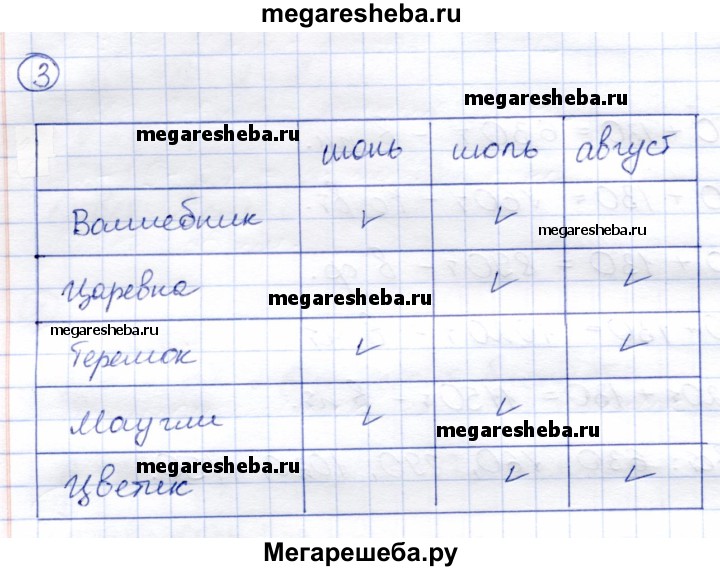 megaresheba.ru
3
megaresheba.ru
megaresheba.ru июнь июль август
Волшебник ✓ ✓ megaresheba.ru
Царевна megaresheba.ru ✓ ✓
megaresheba.ru
Теремок ✓ ✓
Маугли ✓ ✓ megaresheba.ru
megaresheba.ru
Цветик ✓ ✓
Мегарешеба.ру